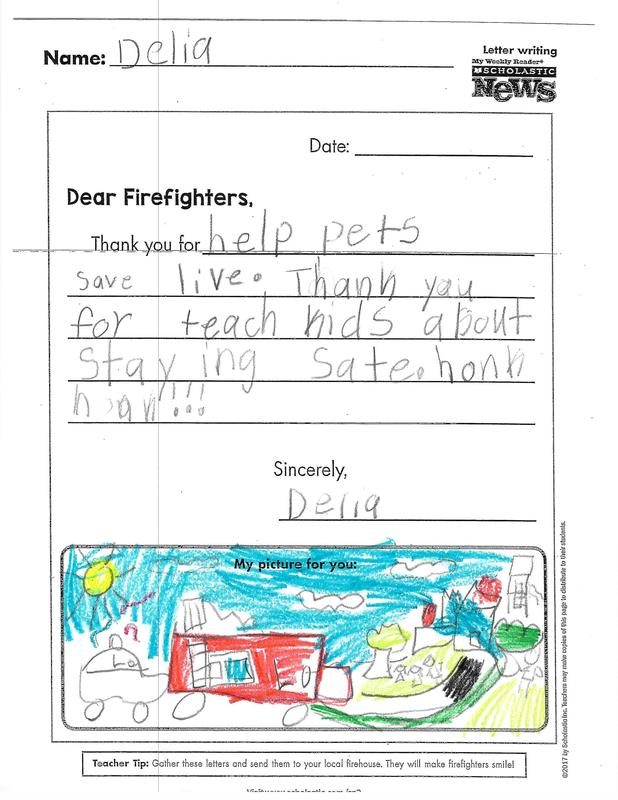 Name: Delia
Letter writing
My Weekly Reader®
SCHOLASTIC
NeWS
Date:
Dear Firefighters,
Thank you for help pets
save live. Thank you
for teach kids about
Stay ing Sate. honk
Sincerely,
Delia
My picture for you:
Teacher Tip: Gather these letters and send them to your local firehouse. They will make firefighters smile!
©2017 by Scholastic Inc. Teachers may make copies of this page to distribute to their students.